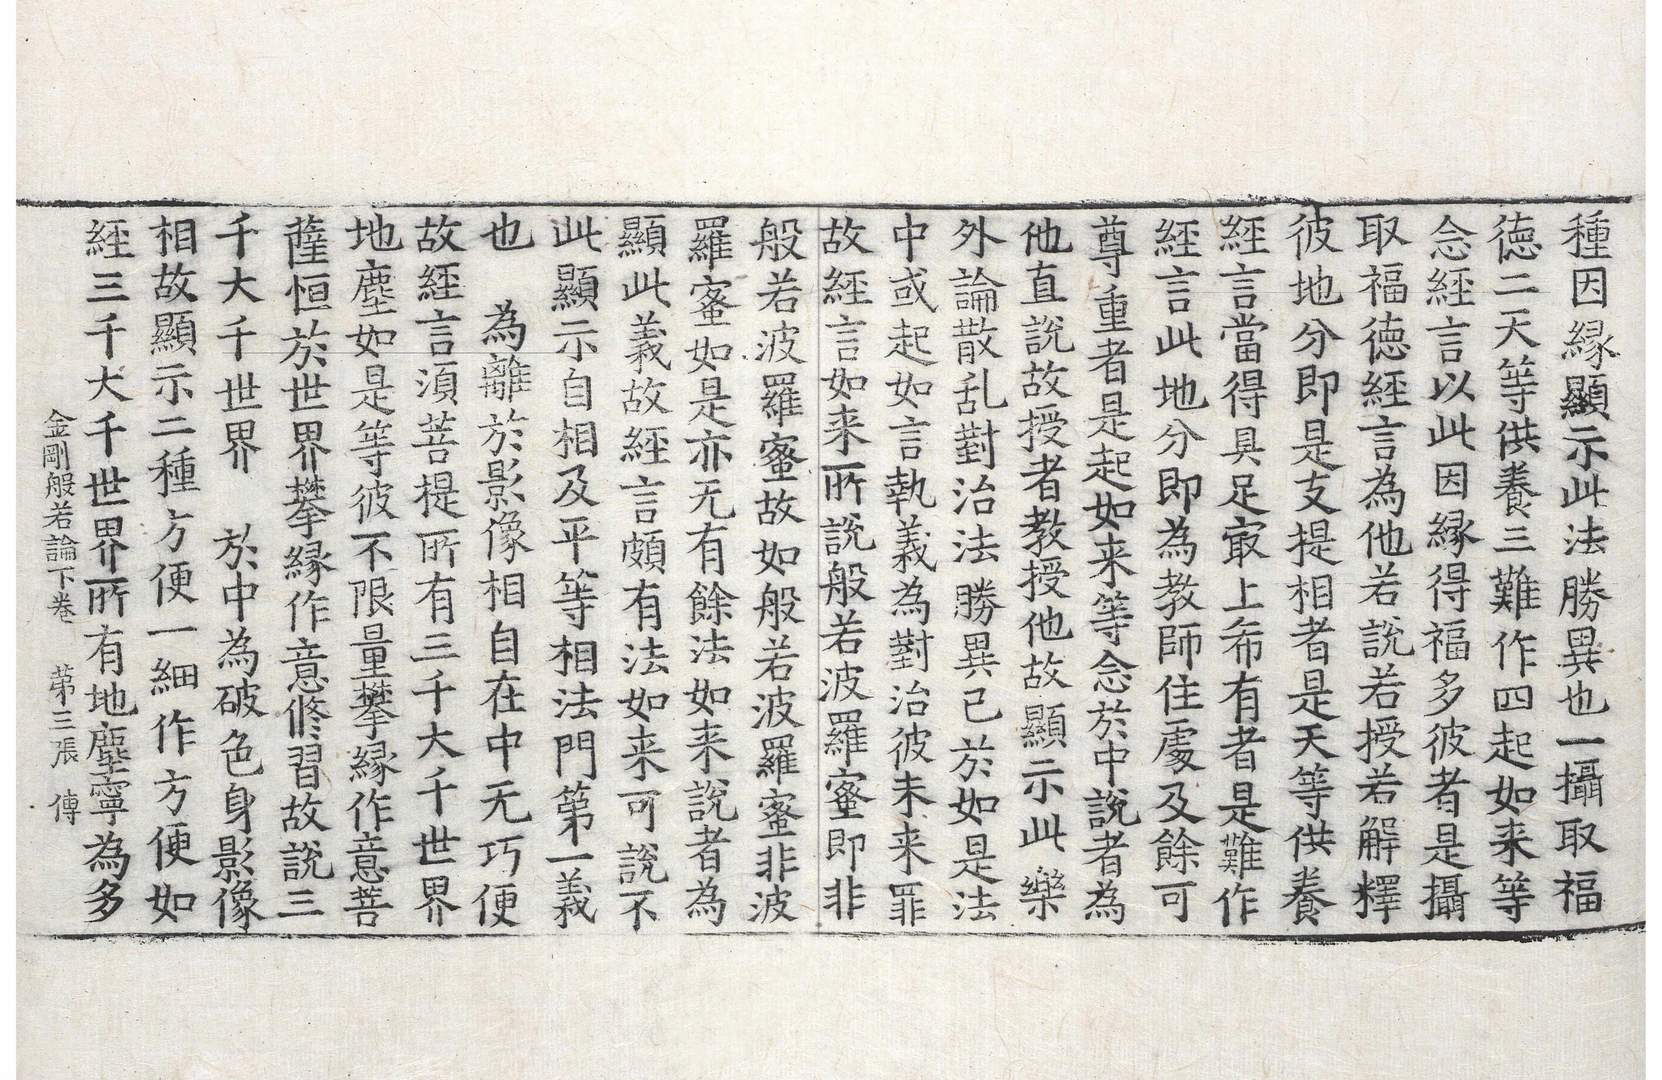 種因緣顯示此法勝異也一攝取福
德二天等供養三難作四起如来等
念經言以此因緣得福多彼者是攝
取福德經言為他若說若授若解釋
彼地分即是支提相者是天等供養
經言當得具足㝡上希有者是難作
經言此地分即為教師住處及餘可
尊重者是起如来等念於中說者為
他直說故授者教授他故顯示此樂
外論散乱對治法勝異已於如是法
中或起如言執義為對治彼未来罪
故經言如来所說般若波羅蜜即非
般若波羅蜜故如般若波羅蜜非波
羅蜜如是亦无有餘法如来說者為
顯此義故經言頗有法如来可說不
此顯示自相及平等相法門第一義
也　為離於影像相自在中无巧便
故經言湏菩提所有三千大千世界
地塵如是等彼不限量攀緣作意菩
薩恒於世界攀緣作意修習故說三
千大千世界　於中為破色身影像
相故顯示二種方便一細作方便如
經三千大千世界所有地塵寧為多
金剛般若論下卷　第三張　傳